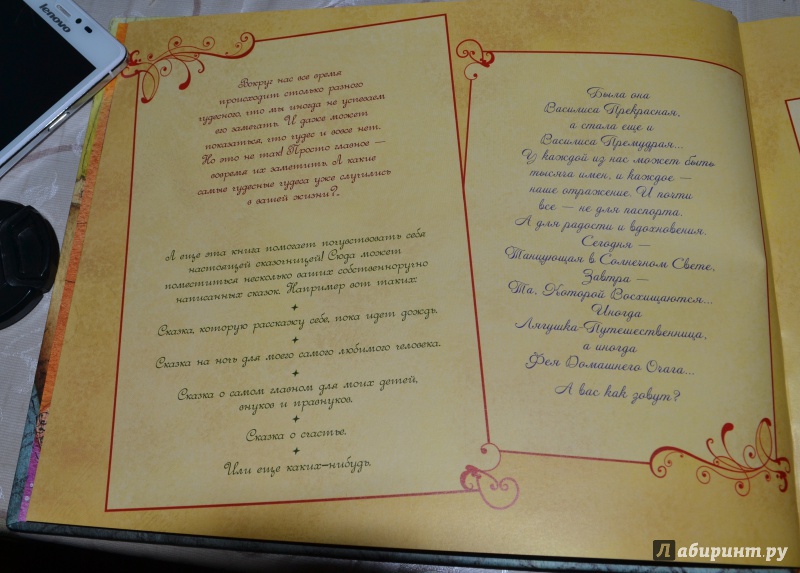 lenovo
Вокруг нас все время
происходит столько разного
чудесного, что мы иногда не успеваем
его замечать. И даже может
показаться, что чудес и вовсе нет.
Но это не так! Просто главное —
вовремя их заметить. А какие
самые чудесные чудеса уже случились
в вашей жизни?..
А еще эта книга помогает почувствовать себя
настоящей сказочницей! Сюда может
поместиться несколько ваших собственноручно
написанных сказок. Например вот таких:
Сказка, которую расскажу себе, пока идет дождь.
Сказка на ночь для моего самого любимого человека.
Сказка о самом главном для моих детей,
внуков и правнуков.
Сказка о счастье.
Или еще каких-нибудь.
Была она
Василиса Прекрасная,
а стала еще и
Василиса Премудрая...
У каждой из нас может быть
тысяча имен, и каждое —
наше отражение. И почти
все — не для паспорта.
А для радости и вдохновения.
Сегодня —
Танцующая в Солнечном Свете,
Завтра —
Та, Которой Восхищаются...
Иногда
Лягушка-Путешественница,
а иногда
Фея Домашнего Очага...
А вас как зовут?
Лабиринт.ру